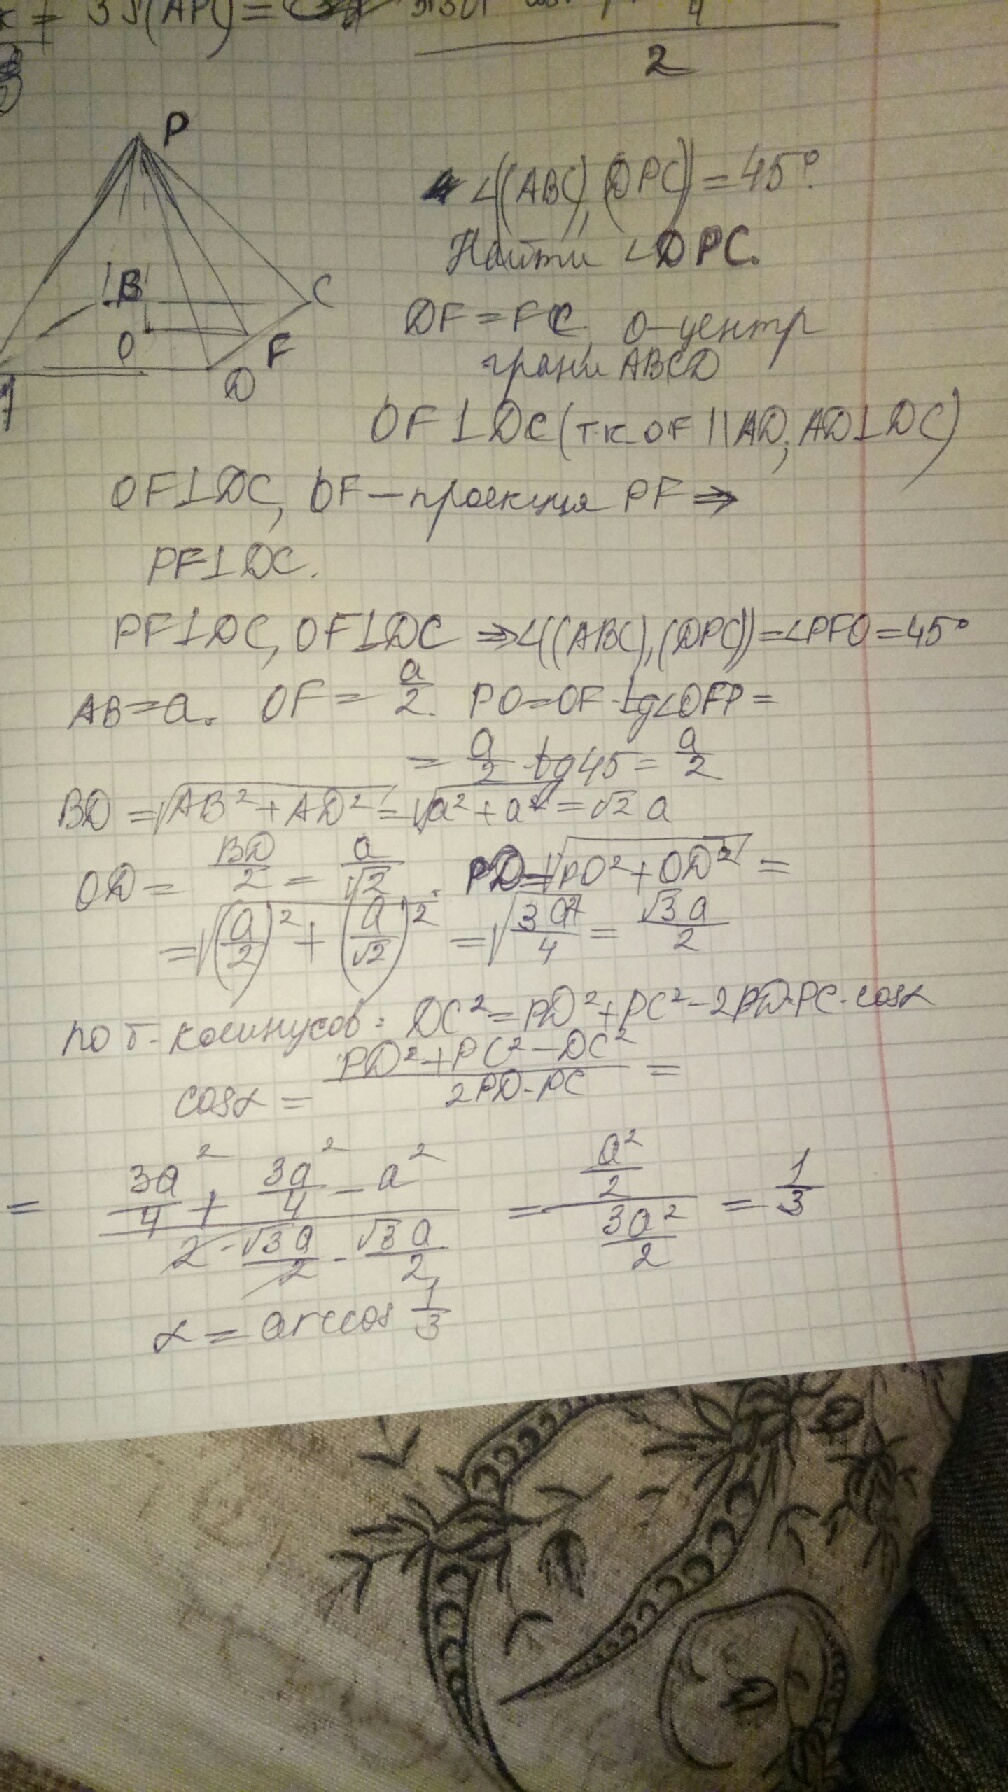 = 3S(APC) =
2
P
B
C
O
F
D
∠((ABC), (DPC)) = 45°.
Найти ∠DPC.
DF = FC, O-центр
грани ABCD
OF⊥DC (т.к. OF || AD, AD⊥DC)
OF⊥DC, OF – проекция PF ⇒
PF⊥DC.
PF⊥DC, OF⊥DC ⇒ ∠((ABC), (DPC)) = ∠PFO = 45°
AB = a. OF = a/2. PO = OF · tg∠OFP =
= a/2 · tg 45 = a/2
BD = √(AB² + AD²) = √(a² + a²) = √2 a
OD = BD/2 = a/√2. PD = √(PO² + OD²) =
= √((a/2)² + (a/√2)²) = √(3a²/4) = √3a/2
по т. косинусов: DC² = PD² + PC² – 2PD·PC·cosα
cosα = (PD² + PC² – DC²)/(2PD·PC) =
= (3a²/4 + 3a²/4 – a²)/(2 · √3a/2 · √3a/2) = (a²/2)/(3a²/2) = 1/3
α = arccos 1/3